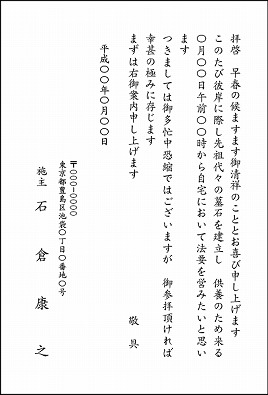 拝啓　早春の候ますます御清祥のこととお喜び申し上げます
このたび彼岸に際し先祖代々の墓石を建立し　供養のため来る
〇月〇〇日午前〇〇時から自宅において法要を営みたいと思い
ます
つきましては御多忙中恐縮ではございますが　御参拝頂ければ
幸甚の極みに存じます
まずは右御案内申し上げます
敬具
平成〇〇年〇月〇〇日
〒000-0000
東京都豊島区池袋〇丁目〇番地〇号
施主　石倉康之